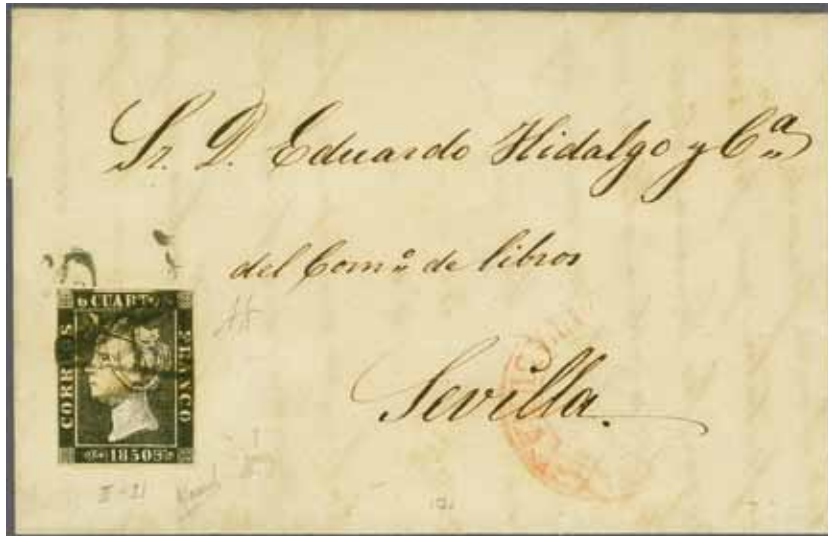 Sr. D. Eduardo Hidalgo y Cª
del Comº de libros
Sevilla.
6 CUARTOS
CORREOS
FRANCO
1850
II-21